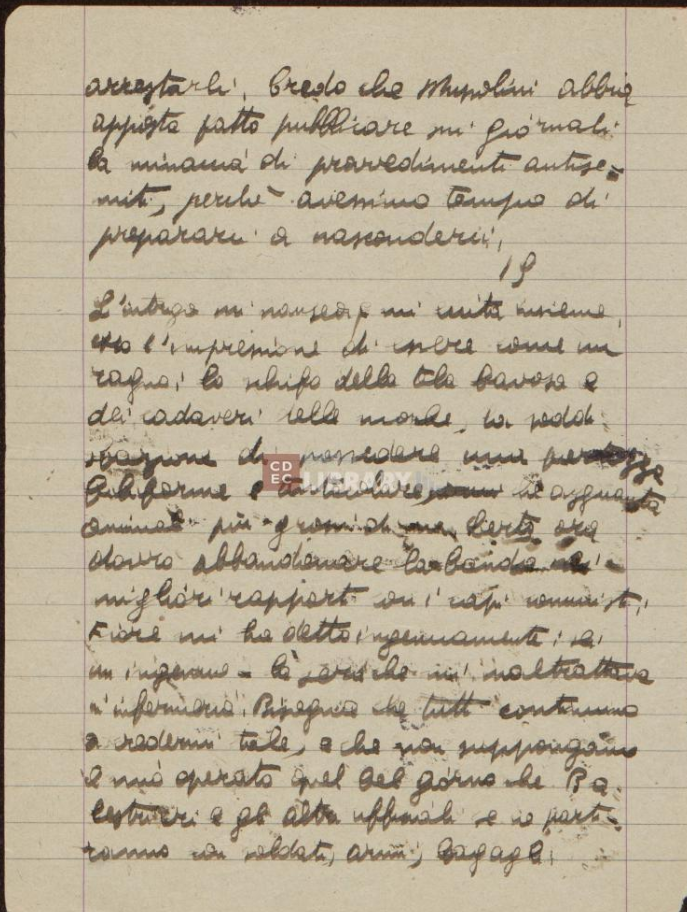 arrestarli. Credo che Mussolini abbia
apposta fatto pubblicare sui giornali
la minaccia di provvedimenti antise=
miti, perché avessimo tempo di
prepararci a nasconderci.
19
L'intrigo mi nausea, mi eccita insieme,
ho l'impressione di essere come un
ragno; lo schifo della tela bavosa e
dei cadaveri delle mosche, la soddi
sfazione di possedere una
e agguanta
animali più grossi di Certo ora
dovrò abbandonare la banda nei
migliori rapporti con i capi comunisti;
Fiore mi ha detto ingenuamente: sei
un ingenuo - la sera che mi maltrattava
in infermeria. Bisogna che tutti continuino
a credermi tale, e che non suppongano
il mio operato quel bel giorno che Ba
lestrieri e gli altri ufficiali se ne parti=
ranno con soldati, armi, bagagli.
CD
EC
LIBRARY